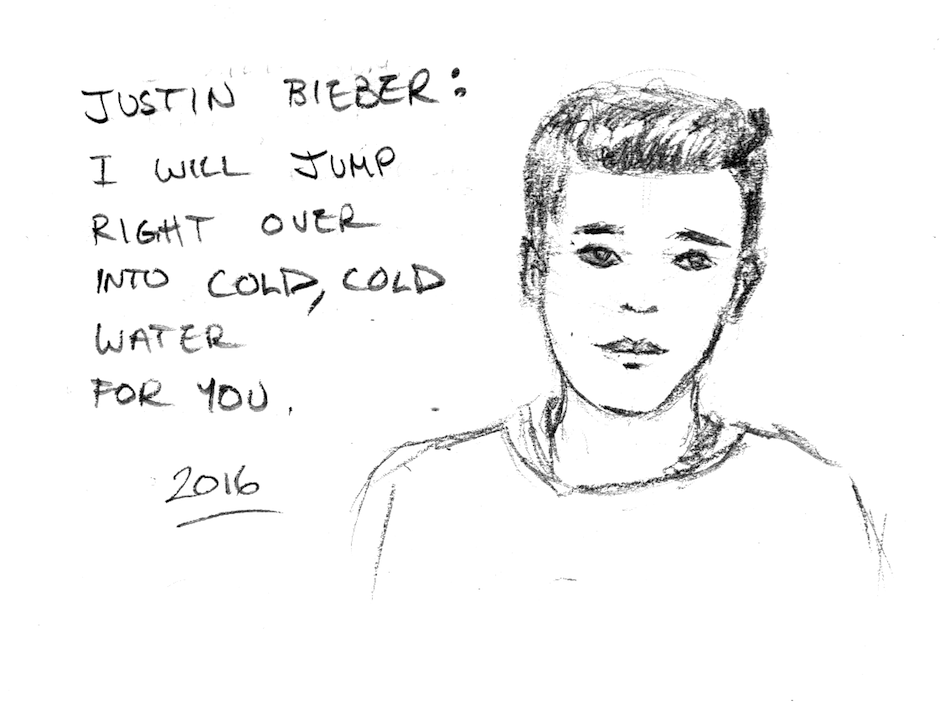 JUSTIN BIEBER:
I WILL JUMP
RIGHT OVER
INTO COLD, COLD
WATER
FOR YOU.
2016